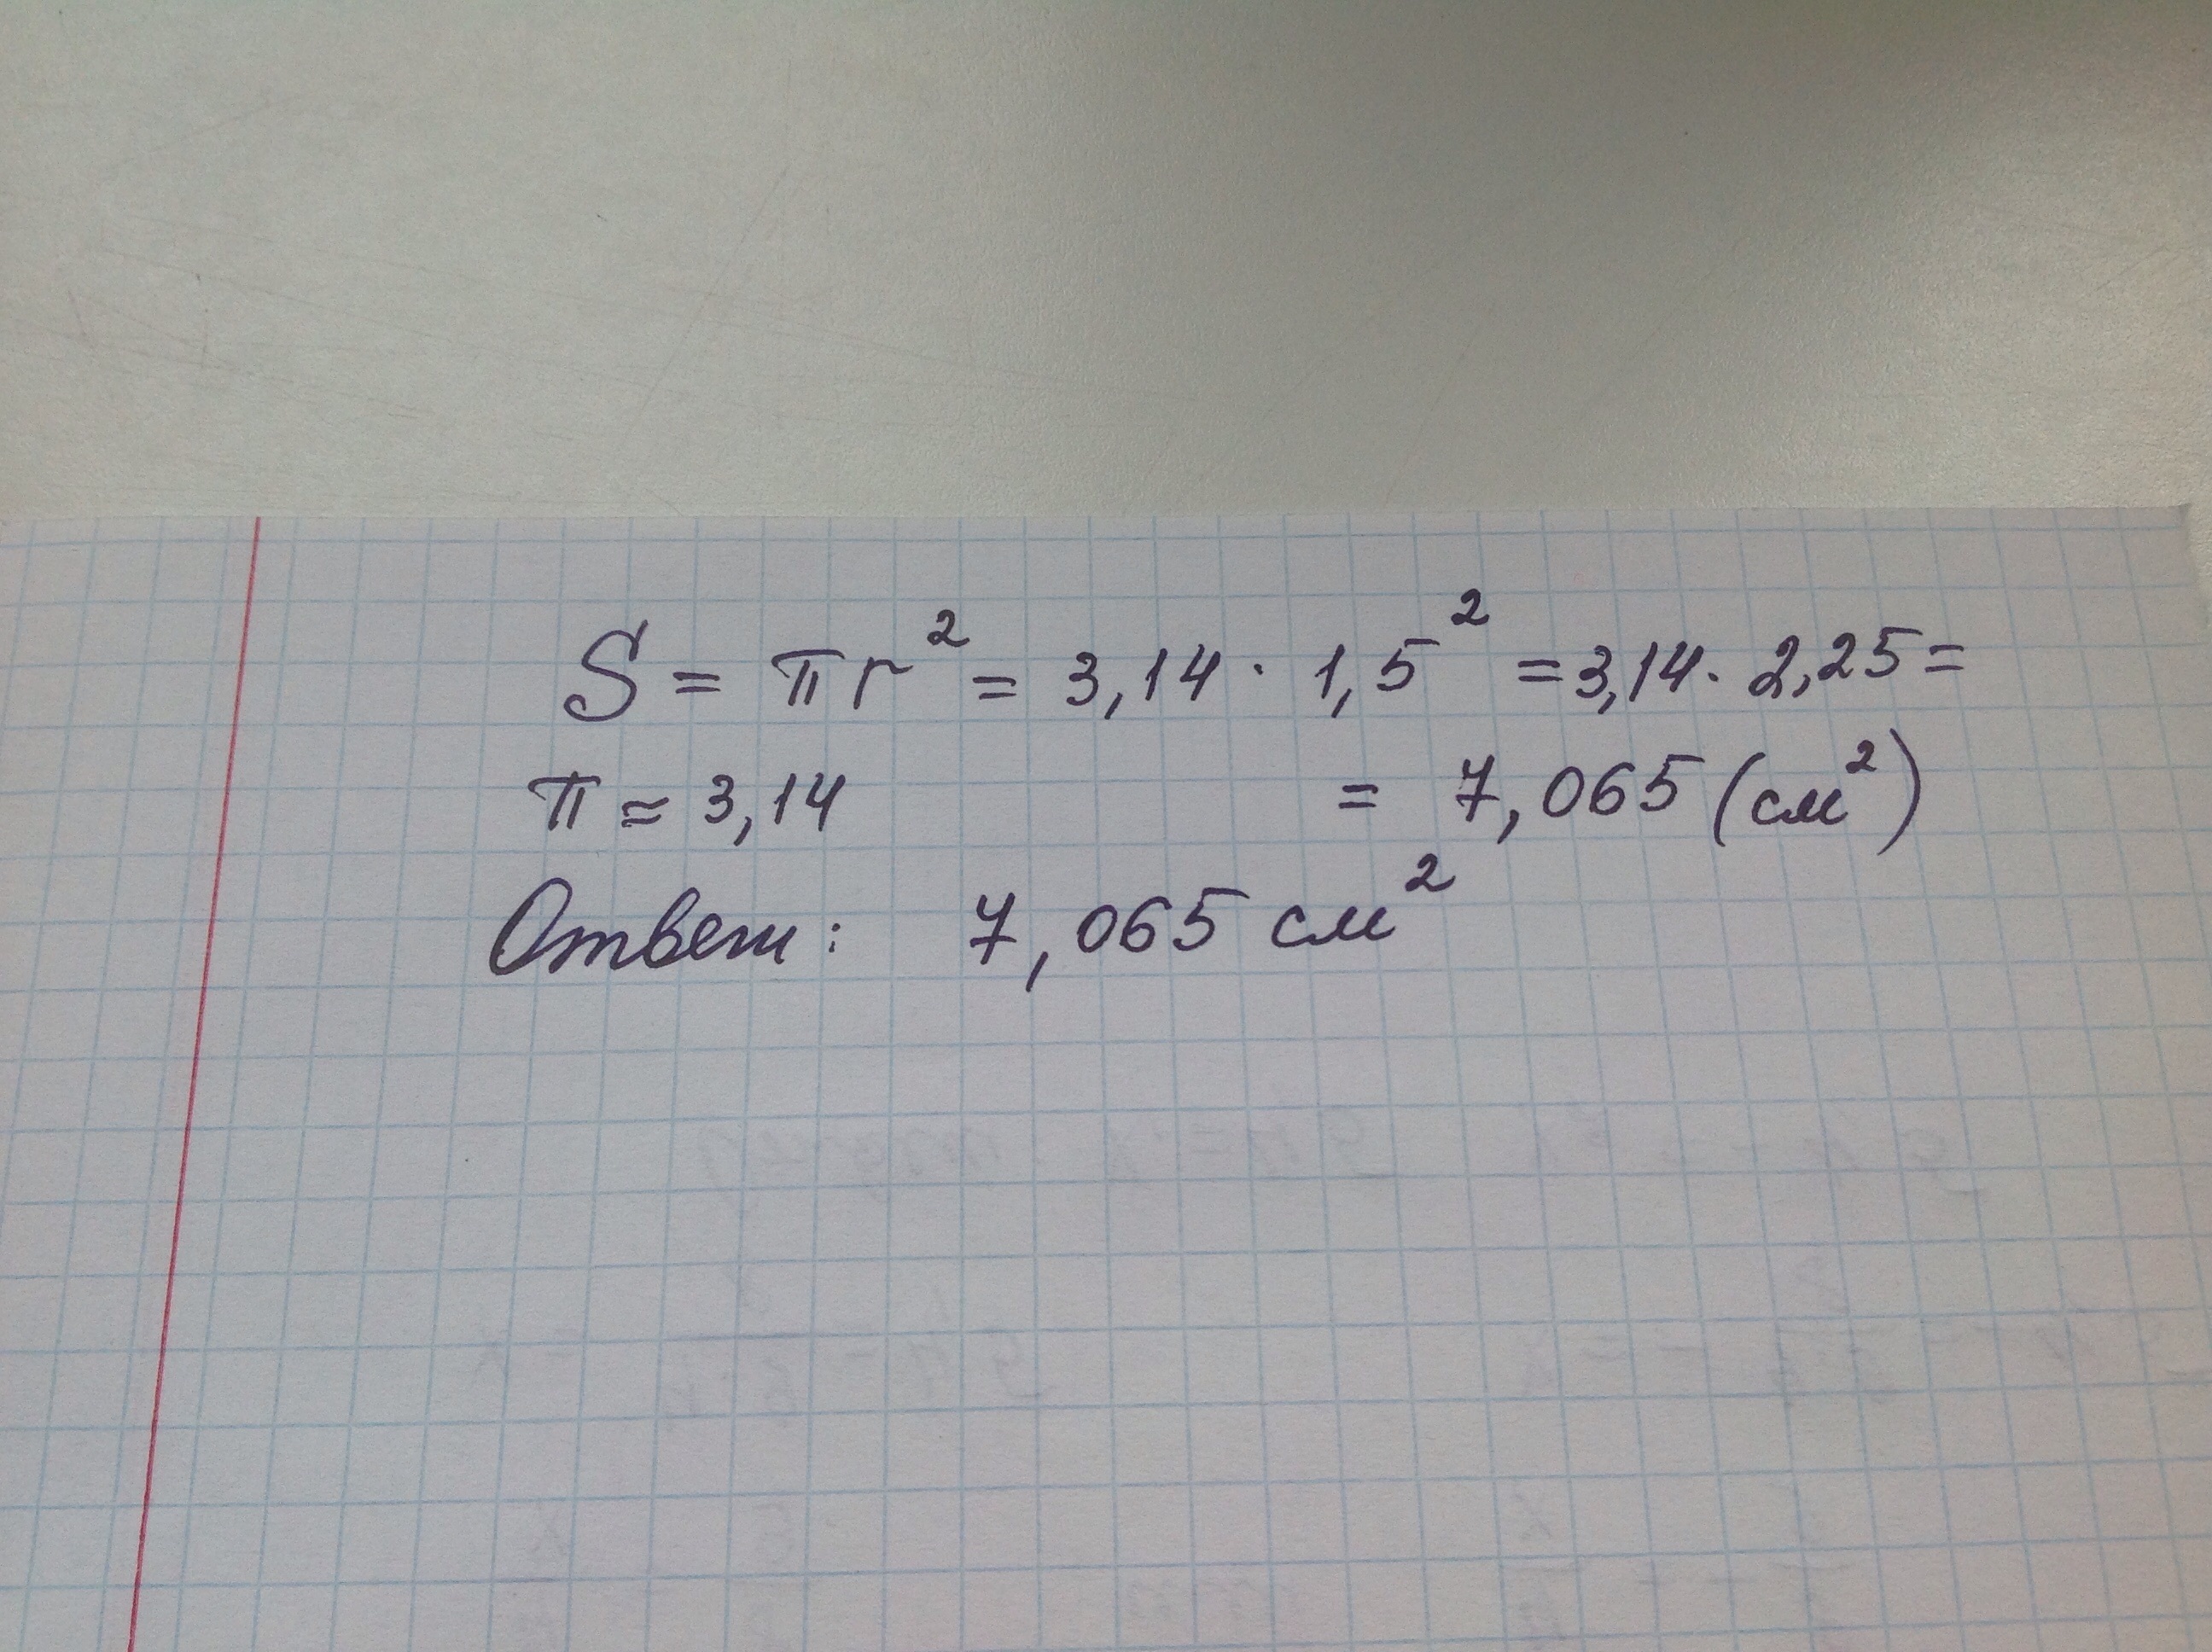 S = πr² = 3,14 · 1,5² = 3,14 · 2,25 =
π ≈ 3,14 = 7,065 (см²)
Ответ: 7,065 см²